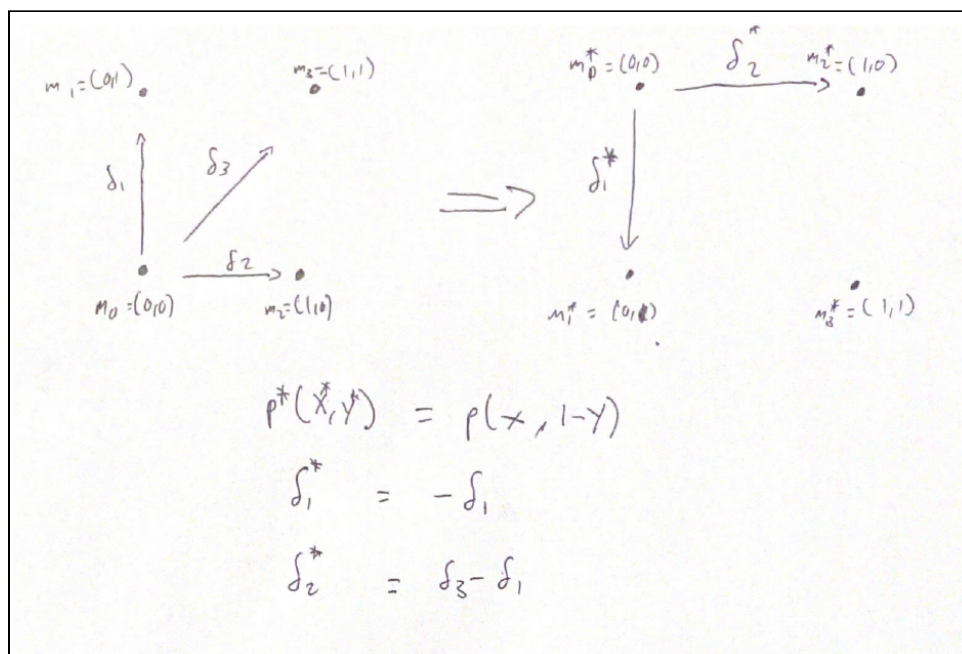 m₁=(0,1)
m₃=(1,1)
δ₁
δ₃
δ₂
m₀=(0,0)
m₂=(1,0)
⇒
m₀*=(0,0)
δ₂*
m₂*=(1,0)
δ₁*
m₁* = (0,1)
m₃*=(1,1)
p*(x*,y*) = p(x, 1-y)
δ₁* = -δ₁
δ₂* = δ₃-δ₁